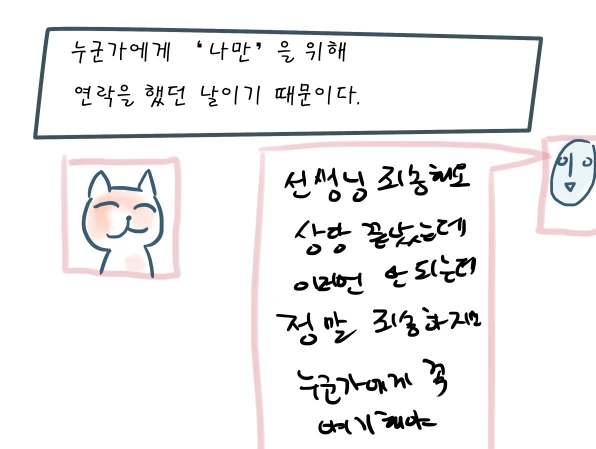 누군가에게 ‘나만’을 위해
연락을 했던 날이기 때문이다.
선생님 죄송해요
상담 끝났는데
이러면 안 되는데
정말 죄송하지만
누군가에게 꼭
얘기해야